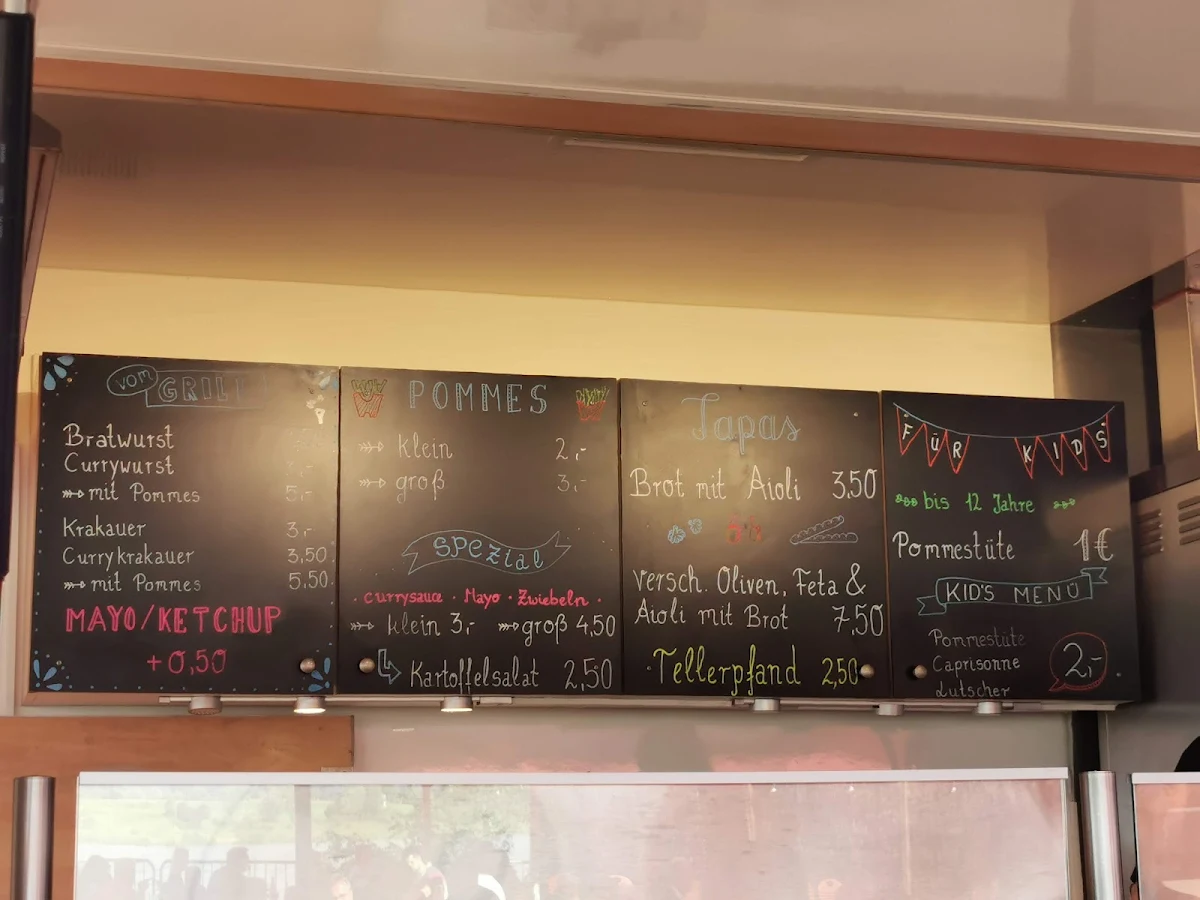 VOM GRILL
Bratwurst
Currywurst
mit Pommes 5,-
Krakauer 3,-
Currykrakauer 3,50
mit Pommes 5,50
MAYO/KETCHUP
+0,50
POMMES
klein 2,-
groß 3,-
SPEZIAL
currysauce · Mayo · Zwiebeln ·
klein 3,- groß 4,50
Kartoffelsalat 2,50
Tapas
Brot mit Aioli 3,50
versch. Oliven, Feta &
Aioli mit Brot 7,50
Tellerpfand 2,50
FÜR KIDS
bis 12 Jahre
Pommestüte 1€
KID'S MENÜ
Pommestüte
Caprisonne 2,-
Lutscher